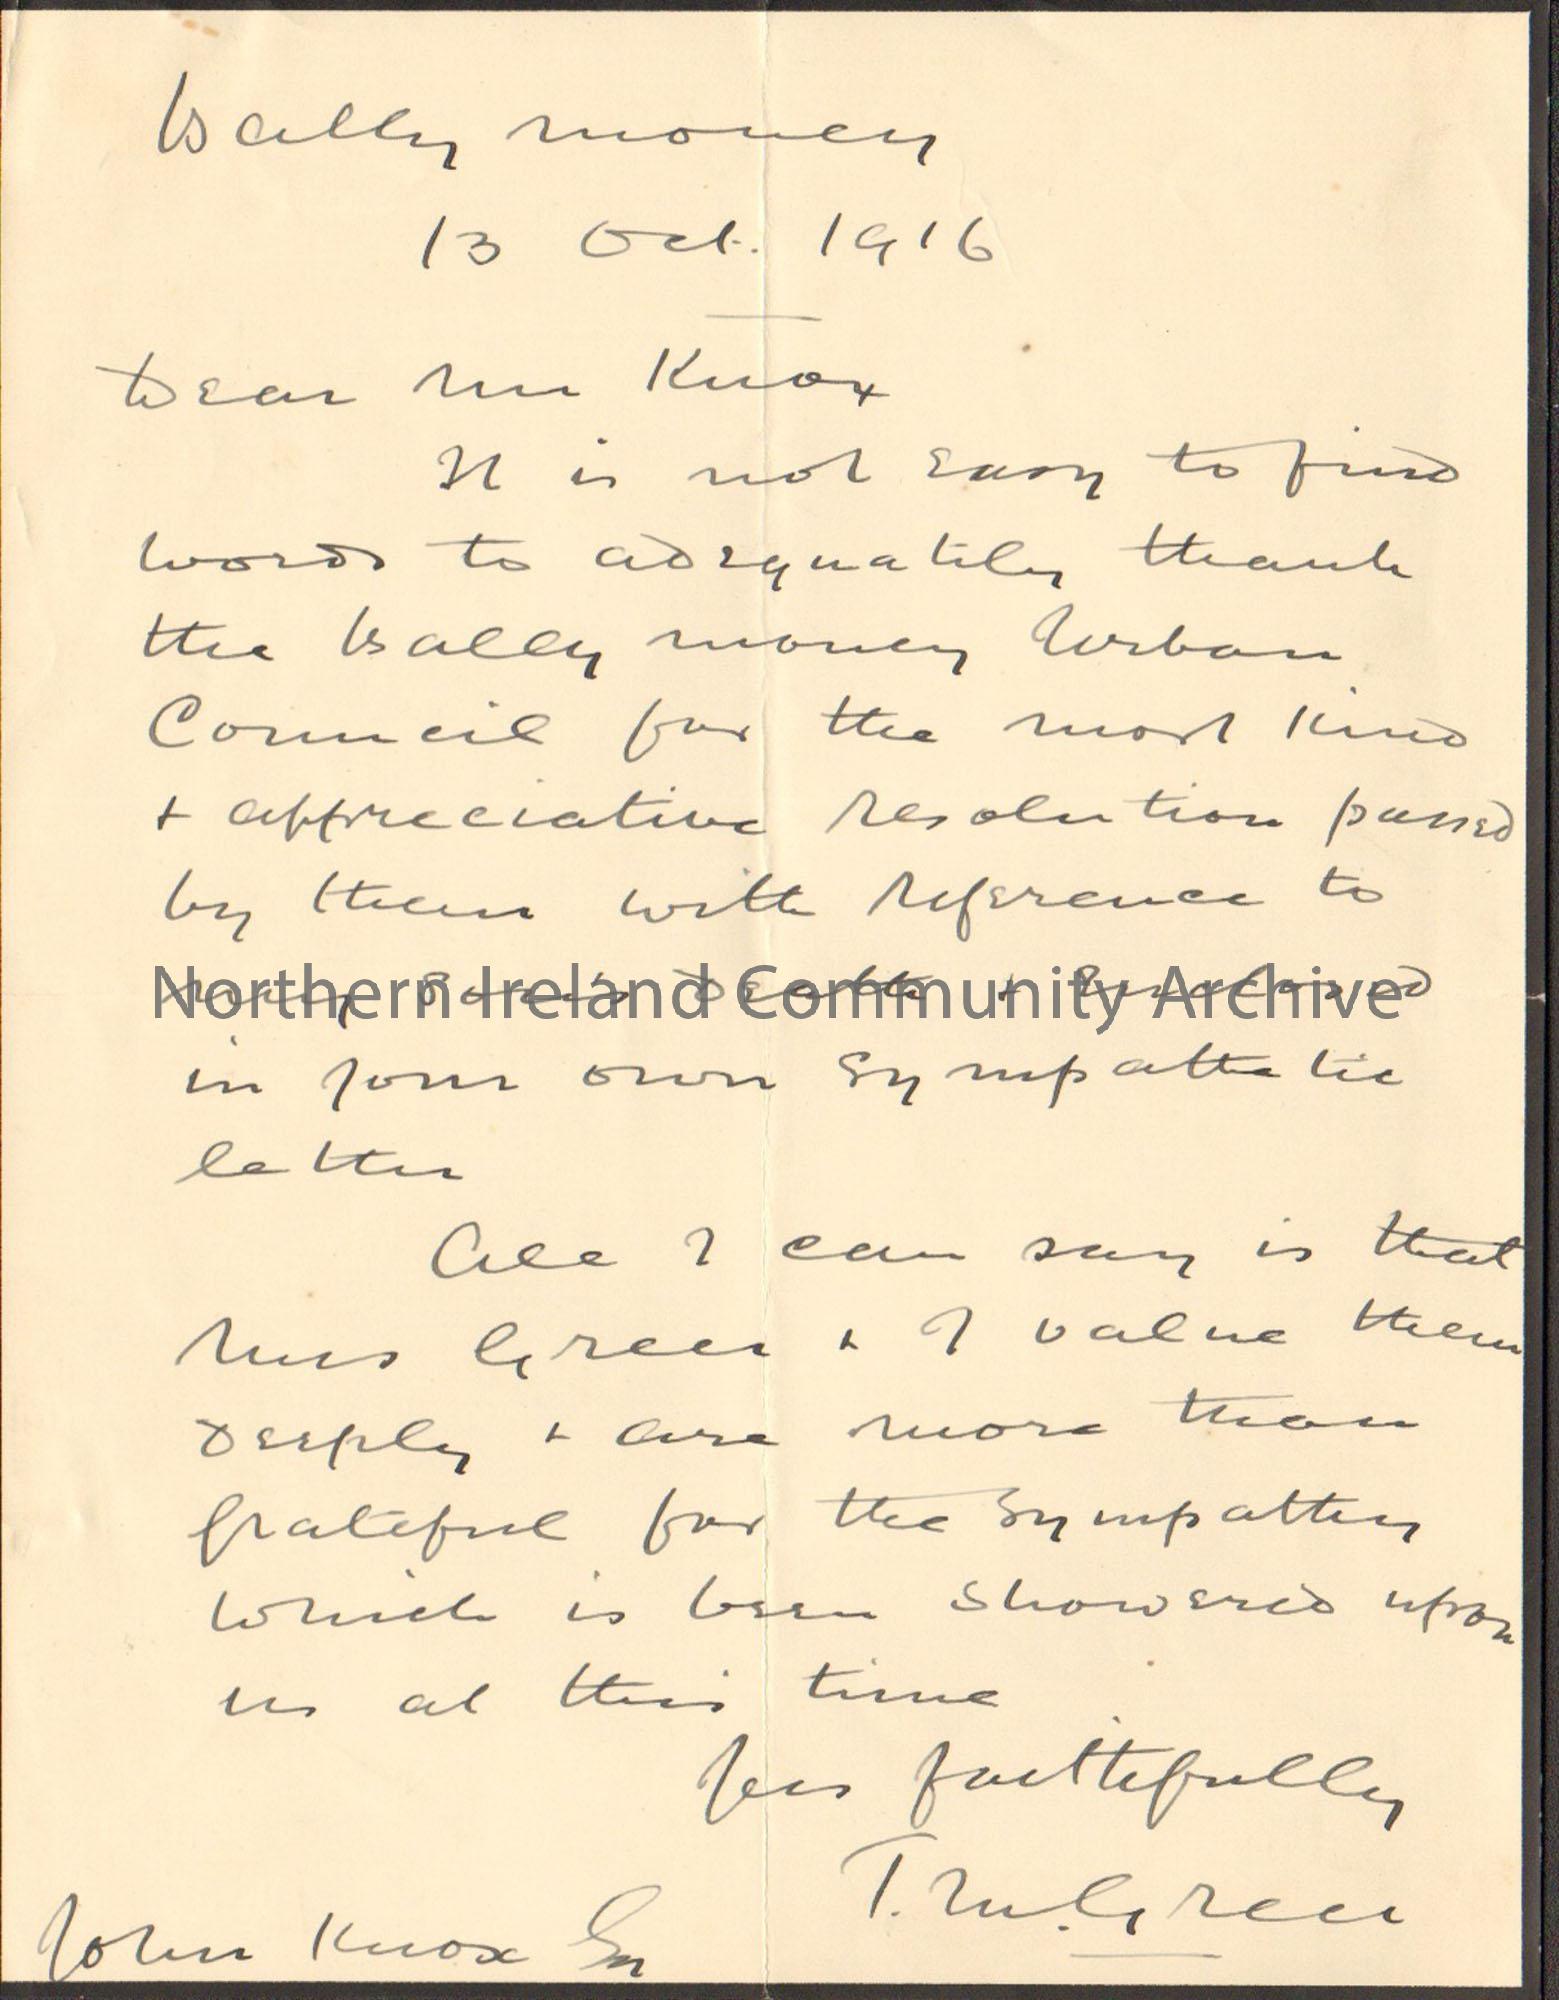 Ballymoney
13 Oct. 1916
Dear Mr Knox
It is not easy to find
words to adequately thank
the Ballymoney Urban
Council for the most kind
+ appreciative resolution passed
by them with reference to
my son's death + enclosed
Northern Ireland Community Archive
in your own sympathetic
letter
All I can say is that
Mrs Green + I value them
deeply + are more than
grateful for the sympathy
which is been showered upon
us at this time
Yrs faithfully
T. M. Green
John Knox Esq